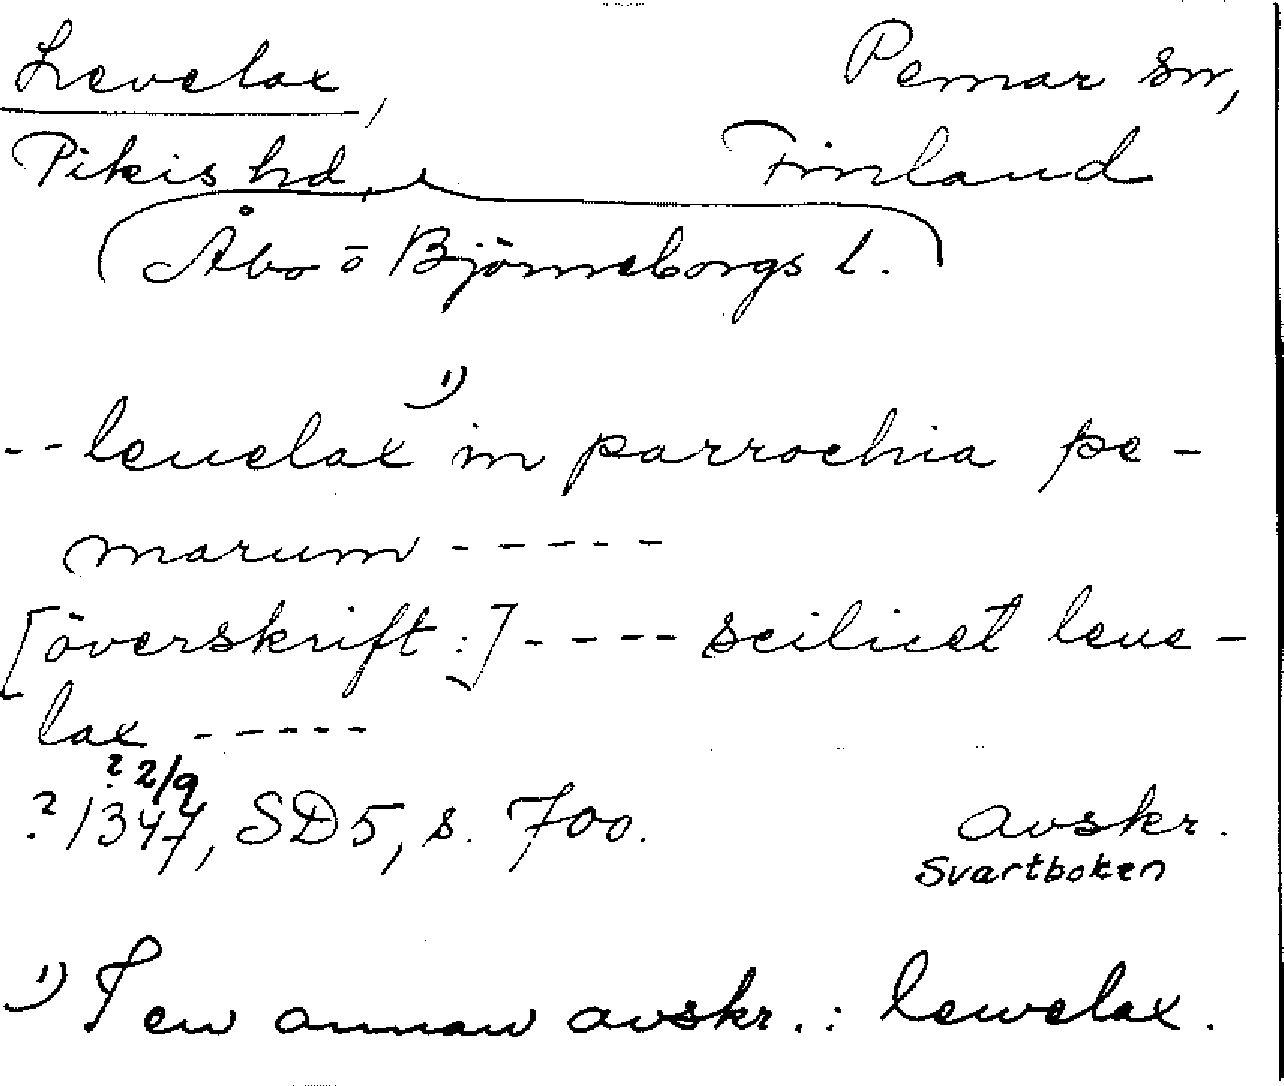 Levelax, Pemar sn,
Pikis hd, Finland
Åbo o Björneborgs l.
-- leuelax 1) in parrochia pe-
marum -----
[överskrift:] ---- scilicet leue-
lax -----
? 2/9
? 1347, SD 5, s. 700. avskr.
Svartboken
1) I en annan avskr.: lewelax.